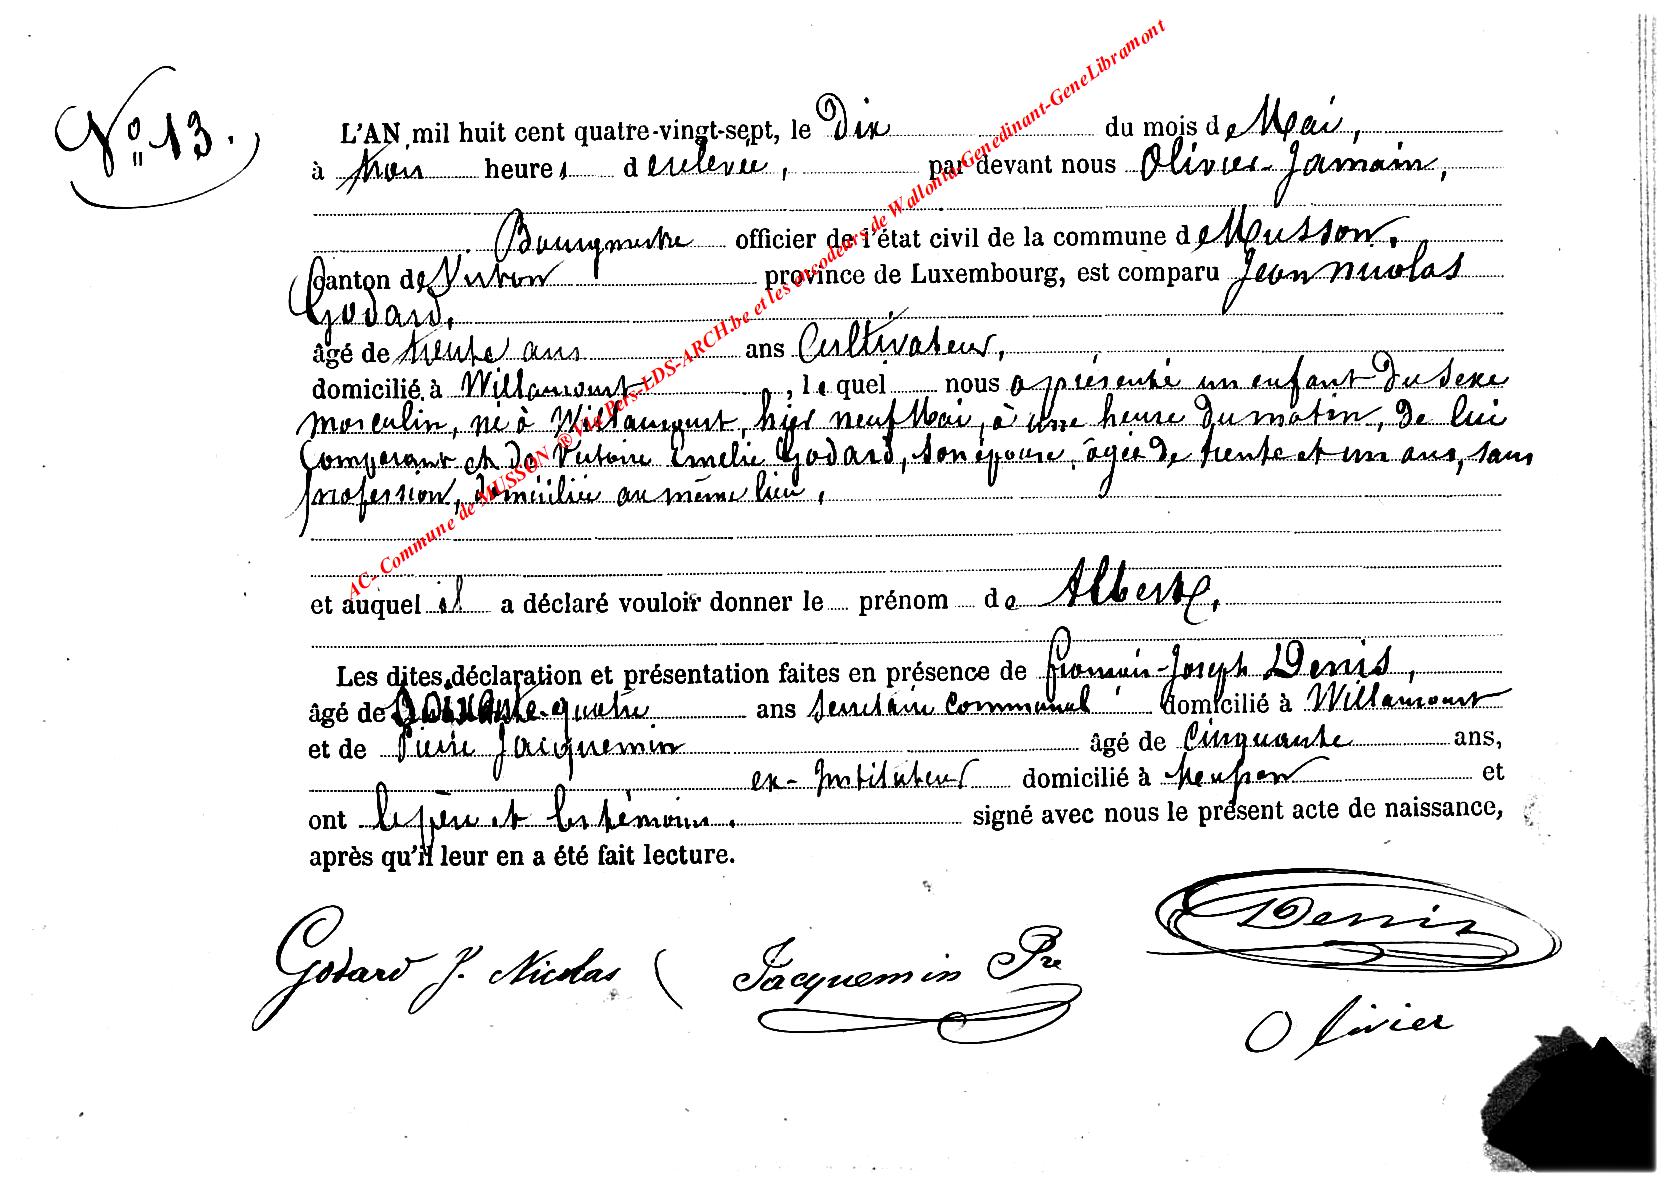 N° 13.
L'AN mil huit cent quatre-vingt-sept, le Dix du mois de Mai,
à trois heures de relevée, par devant nous Olivier Jamain,
Bourgmestre officier de l'état civil de la commune de Musson,
Canton de Virton province de Luxembourg, est comparu Jean Nicolas
Godard,
âgé de trente ans ans Cultivateur,
domicilié à Willancourt, lequel nous a présenté un enfant du sexe
masculin, né à Willancourt, hier neuf Mai, à une heure du matin, de lui
Comparant et de Victoire Emélie Godard, son épouse, âgée de trente et un ans, sans
profession, domiciliée au même lieu,
et auquel il a déclaré vouloir donner le prénom de Albert,
Les dites déclaration et présentation faites en présence de Joseph Denis,
âgé de quatre ans secrétaire communal domicilié à Willancourt
et de Pierre Jacquemin âgé de Cinquante ans,
ex-Instituteur domicilié à et
ont le père et les témoins. signé avec nous le présent acte de naissance,
après qu'il leur en a été fait lecture.
Godard J. Nicolas Jacquemin Pre Denis
Olivier
AC- Commune de MUSSON ® Via Pers-LDS-ARCH.be et les encodeurs de Wallonia-Genedinant-GeneLibramont